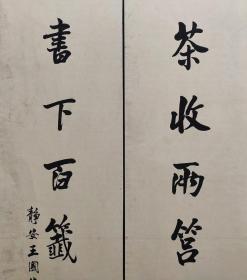 茶收雨筥
書下百籤
靜安王國